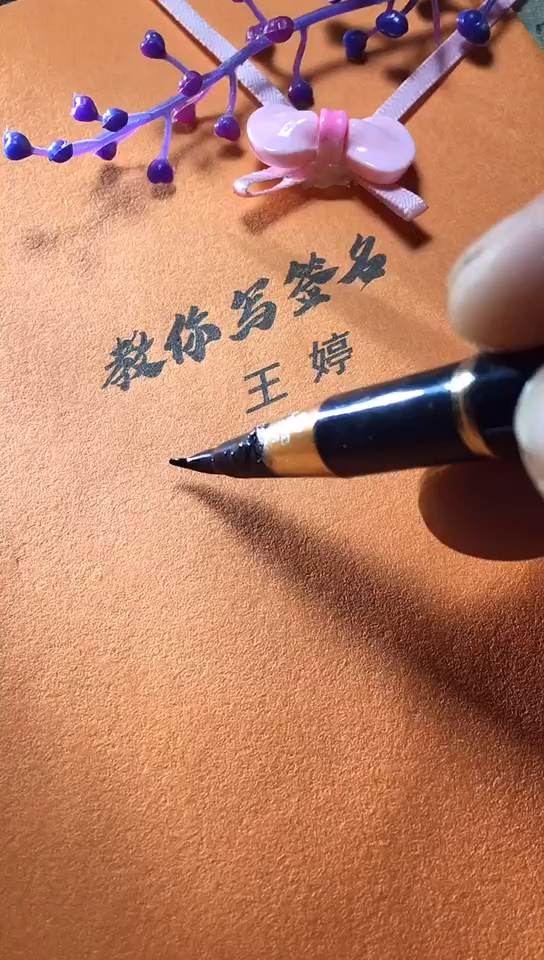 教你写签名
王婷